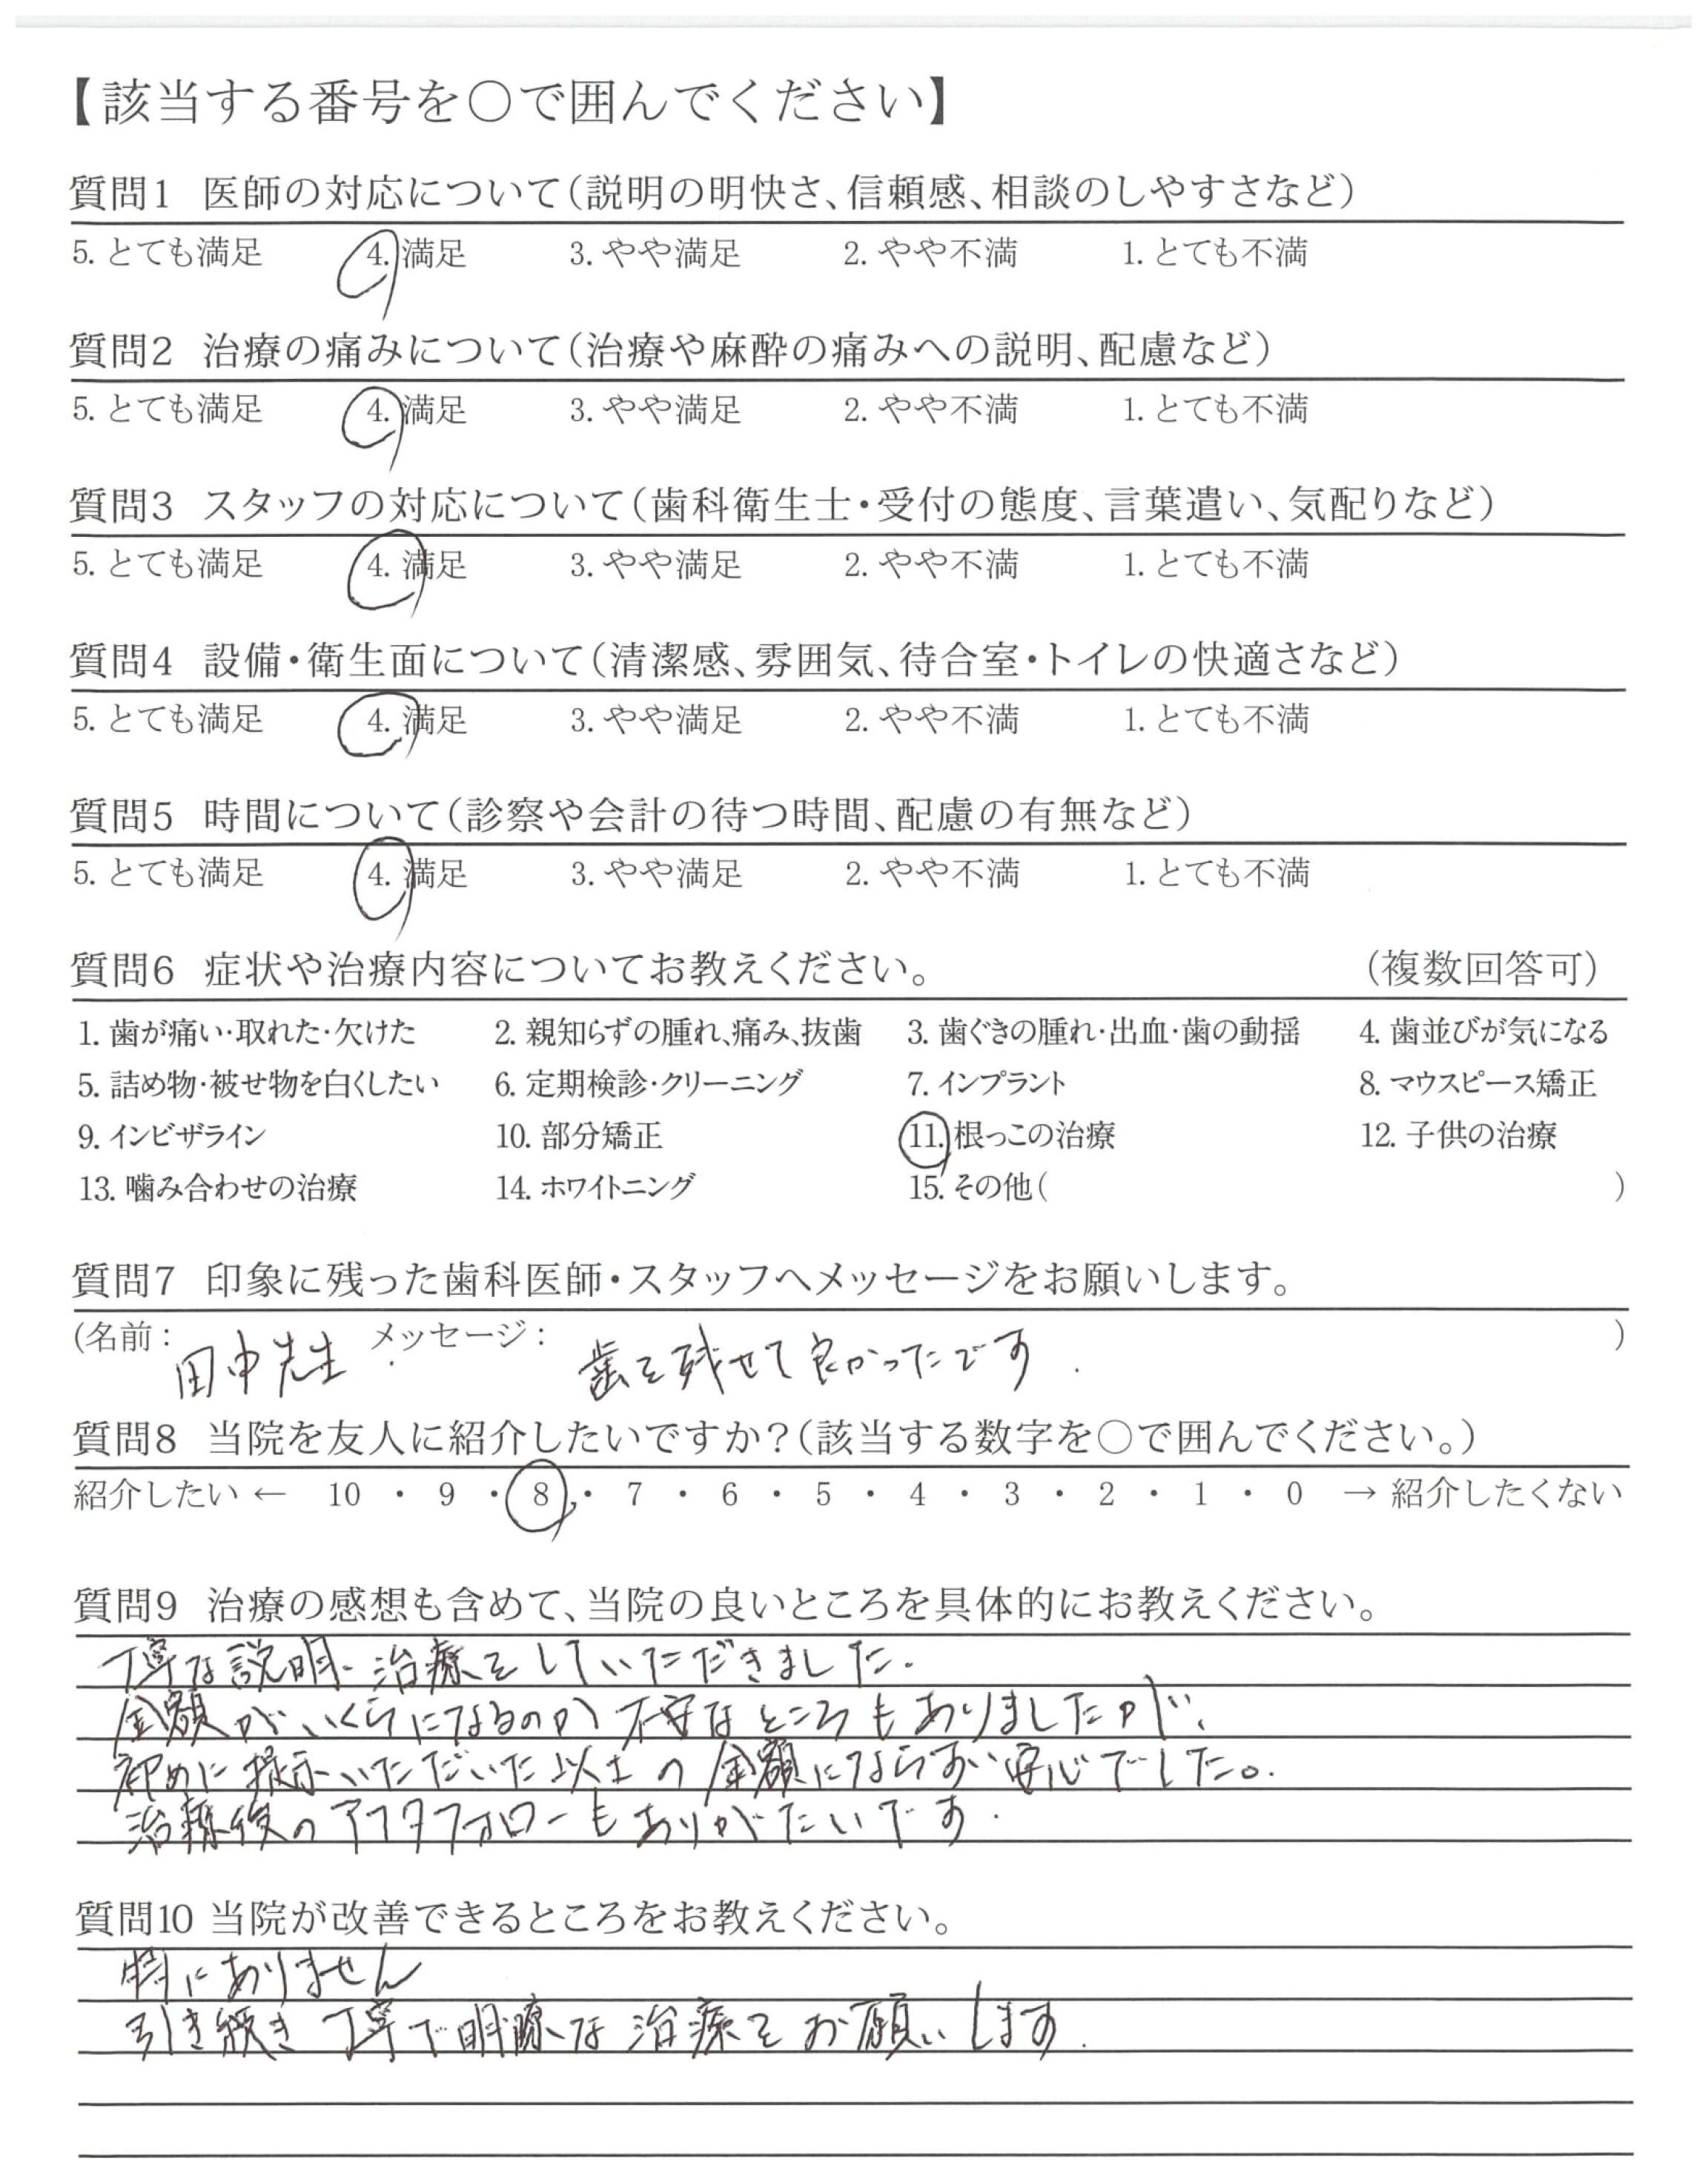 【該当する番号を○で囲んでください】
質問1 医師の対応について(説明の明快さ、信頼感、相談のしやすさなど)
5. とても満足 4. 満足 3. やや満足 2. やや不満 1. とても不満
質問2 治療の痛みについて(治療や麻酔の痛みへの説明、配慮など)
5. とても満足 4. 満足 3. やや満足 2. やや不満 1. とても不満
質問3 スタッフの対応について(歯科衛生士・受付の態度、言葉遣い、気配りなど)
5. とても満足 4. 満足 3. やや満足 2. やや不満 1. とても不満
質問4 設備・衛生面について(清潔感、雰囲気、待合室・トイレの快適さなど)
5. とても満足 4. 満足 3. やや満足 2. やや不満 1. とても不満
質問5 時間について(診察や会計の待つ時間、配慮の有無など)
5. とても満足 4. 満足 3. やや満足 2. やや不満 1. とても不満
質問6 症状や治療内容についてお教えください。 (複数回答可)
1. 歯が痛い・取れた・欠けた 2. 親知らずの腫れ、痛み、抜歯 3. 歯ぐきの腫れ・出血・歯の動揺 4. 歯並びが気になる
5. 詰め物・被せ物を白くしたい 6. 定期検診・クリーニング 7. インプラント 8. マウスピース矯正
9. インビザライン 10. 部分矯正 11. 根っこの治療 12. 子供の治療
13. 噛み合わせの治療 14. ホワイトニング 15. その他( )
質問7 印象に残った歯科医師・スタッフへメッセージをお願いします。
(名前: 田中先生 メッセージ: 歯を残せて良かったです. )
質問8 当院を友人に紹介したいですか?(該当する数字を○で囲んでください。)
紹介したい ← 10 ・ 9 ・ 8 ・ 7 ・ 6 ・ 5 ・ 4 ・ 3 ・ 2 ・ 1 ・ 0 → 紹介したくない
質問9 治療の感想も含めて、当院の良いところを具体的にお教えください。
丁寧な説明、治療をしていただきました.
金額がいくらになるのか不安なところもありましたが、
初めに提示いただいた以上の金額にならず、安心でした。
治療後のアフタフォローもありがたいです.
質問10 当院が改善できるところをお教えください。
特にありません
引き続き丁寧で明瞭な治療をお願いします.